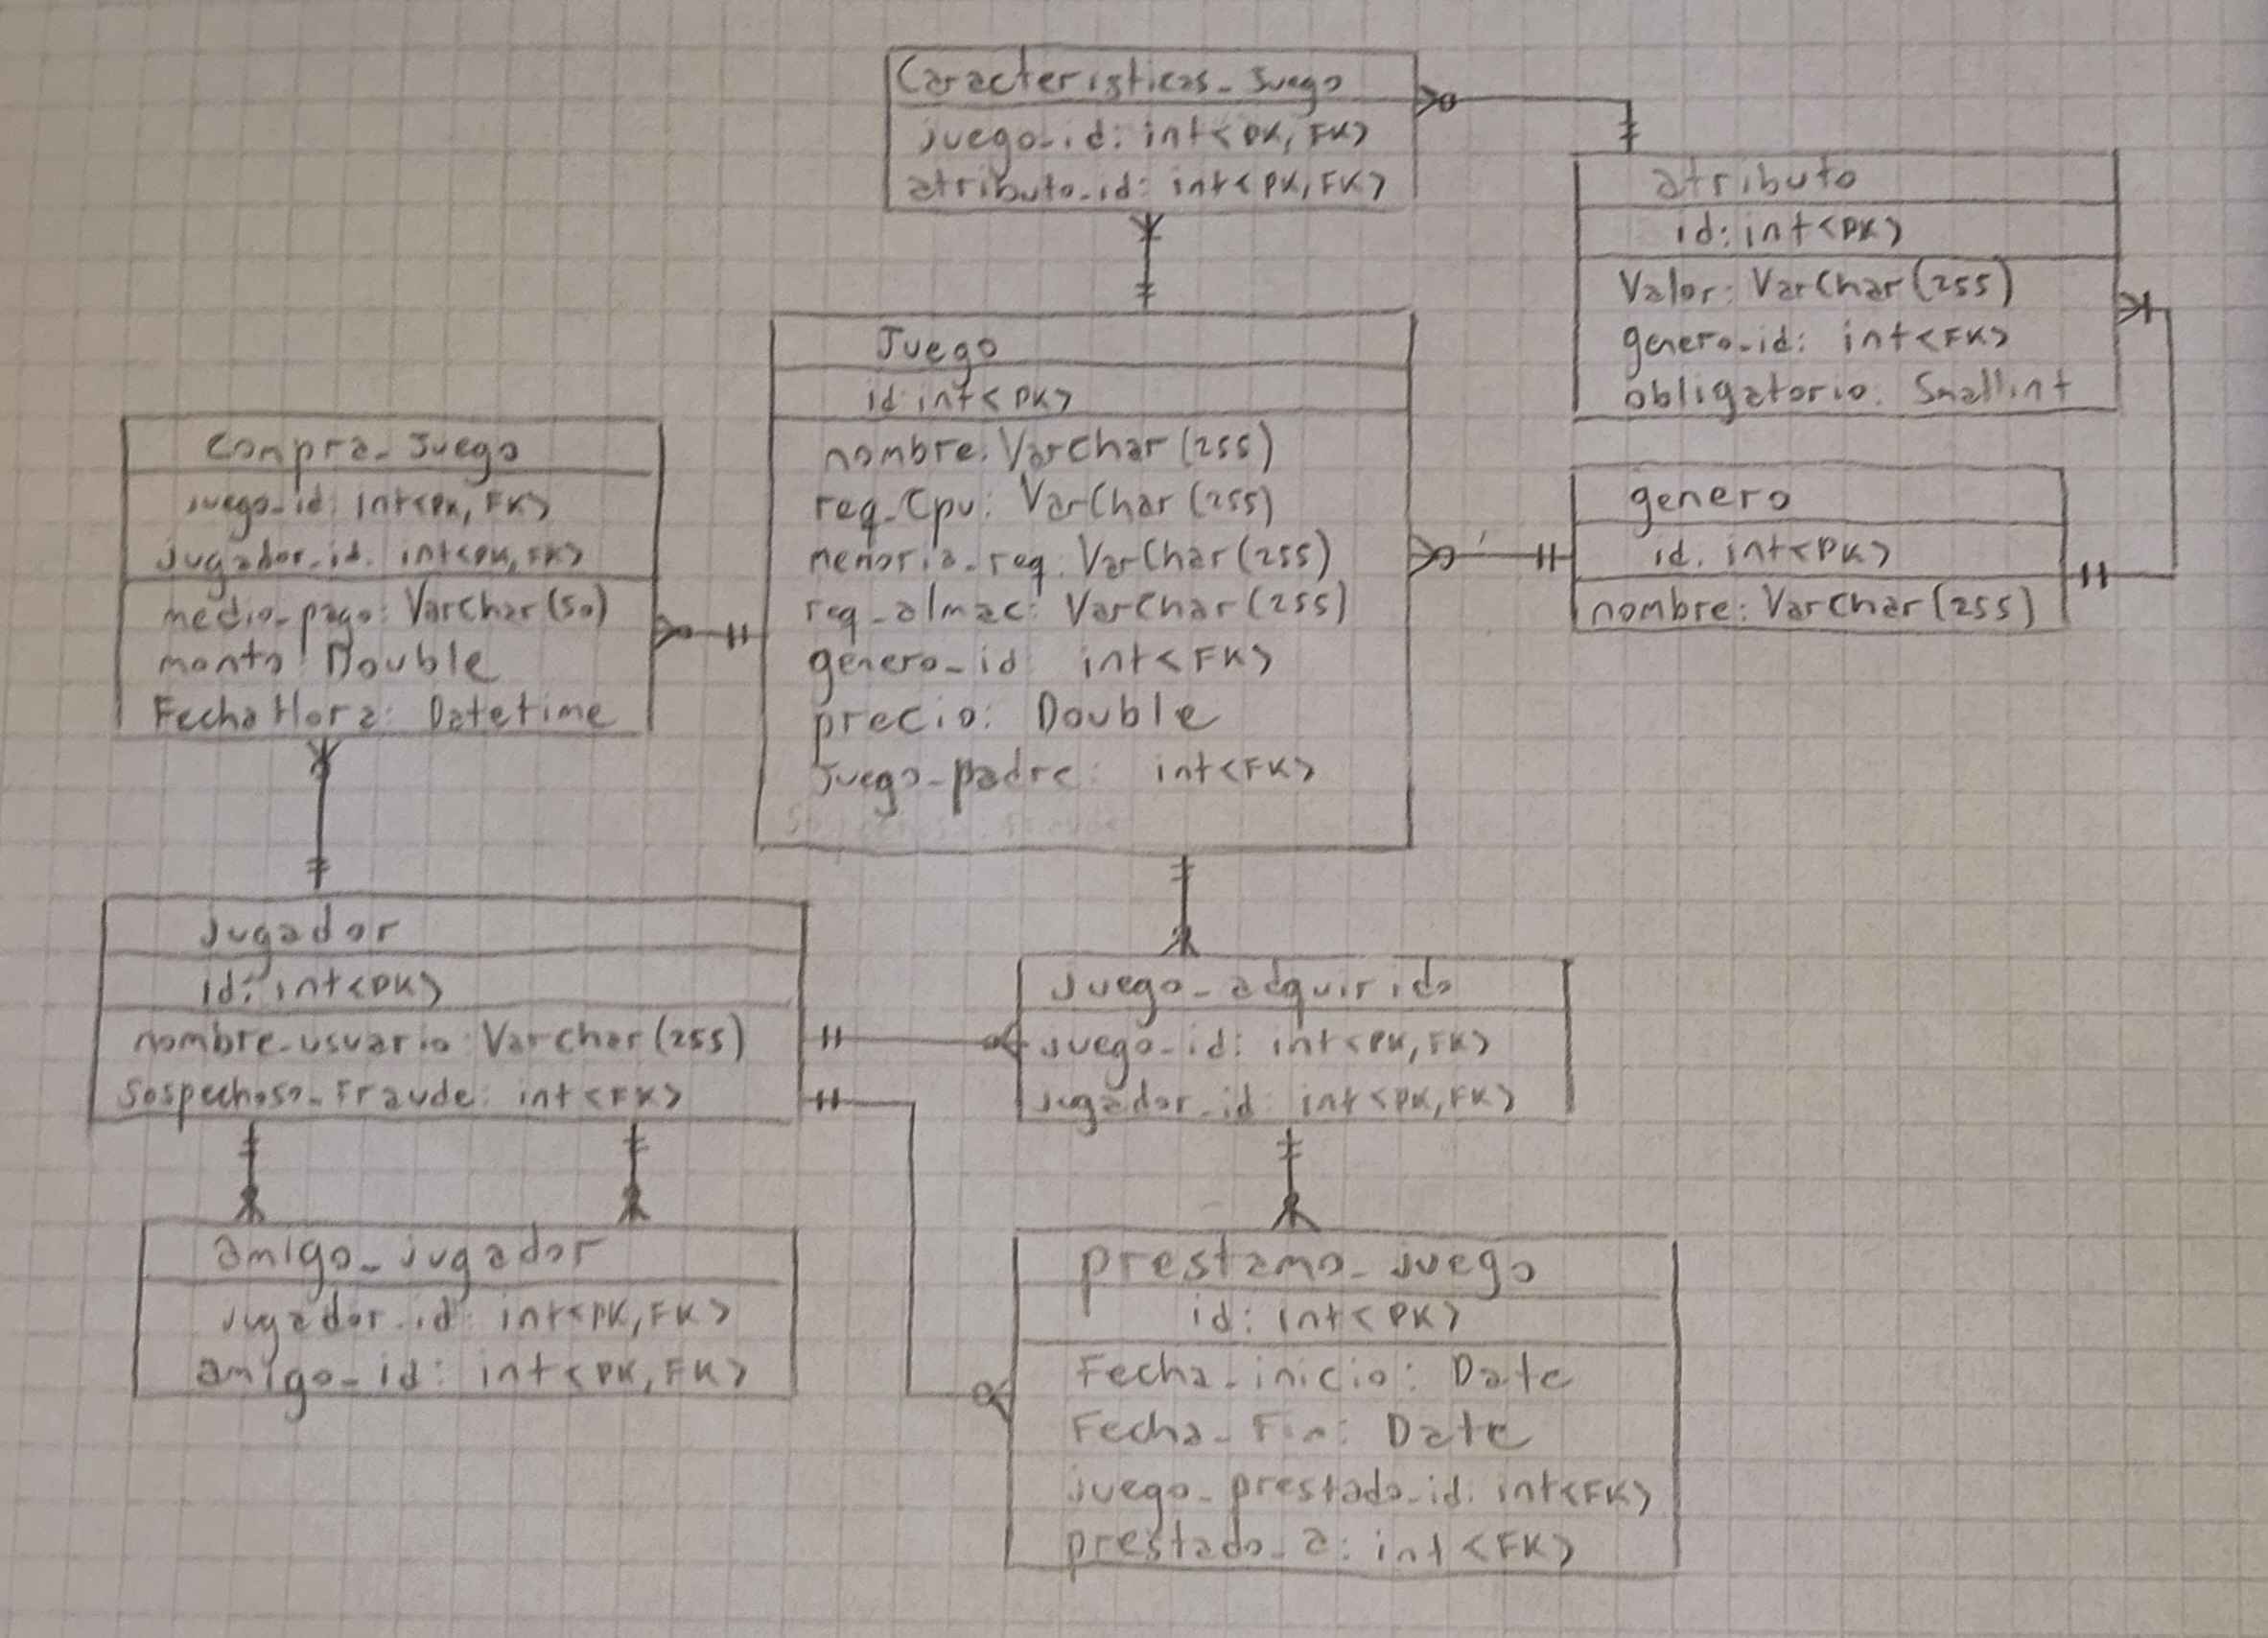 Caracteristicas_Juego
juego_id: int<PK, FK>
atributo_id: int<PK, FK>
atributo
id: int<PK>
Valor: VarChar(255)
genero_id: int<FK>
obligatorio: Smallint
Juego
id int<PK>
nombre: VarChar(255)
req_Cpu: VarChar(255)
memoria_req: VarChar(255)
req_almac: VarChar(255)
genero_id: int<FK>
precio: Double
Juego_padre: int<FK>
Compra_Juego
juego_id: int<PK, FK>
jugador_id. int<PK, FK>
medio_pago: VarChar(50)
monto: Double
FechaHora: Datetime
genero
id. int<PK>
nombre: VarChar(255)
Jugador
id: int<PK>
nombre_usuario: VarChar(255)
Sospechoso_Fraude: int<FK>
Juego_adquirido
juego_id: int<PK, FK>
jugador_id: int<PK, FK>
amigo_jugador
jugador_id: int<PK, FK>
amigo_id: int<PK, FK>
prestamo_juego
id: int<PK>
Fecha_inicio: Date
Fecha_Fin: Date
juego_prestado_id: int<FK>
prestado_a: int<FK>